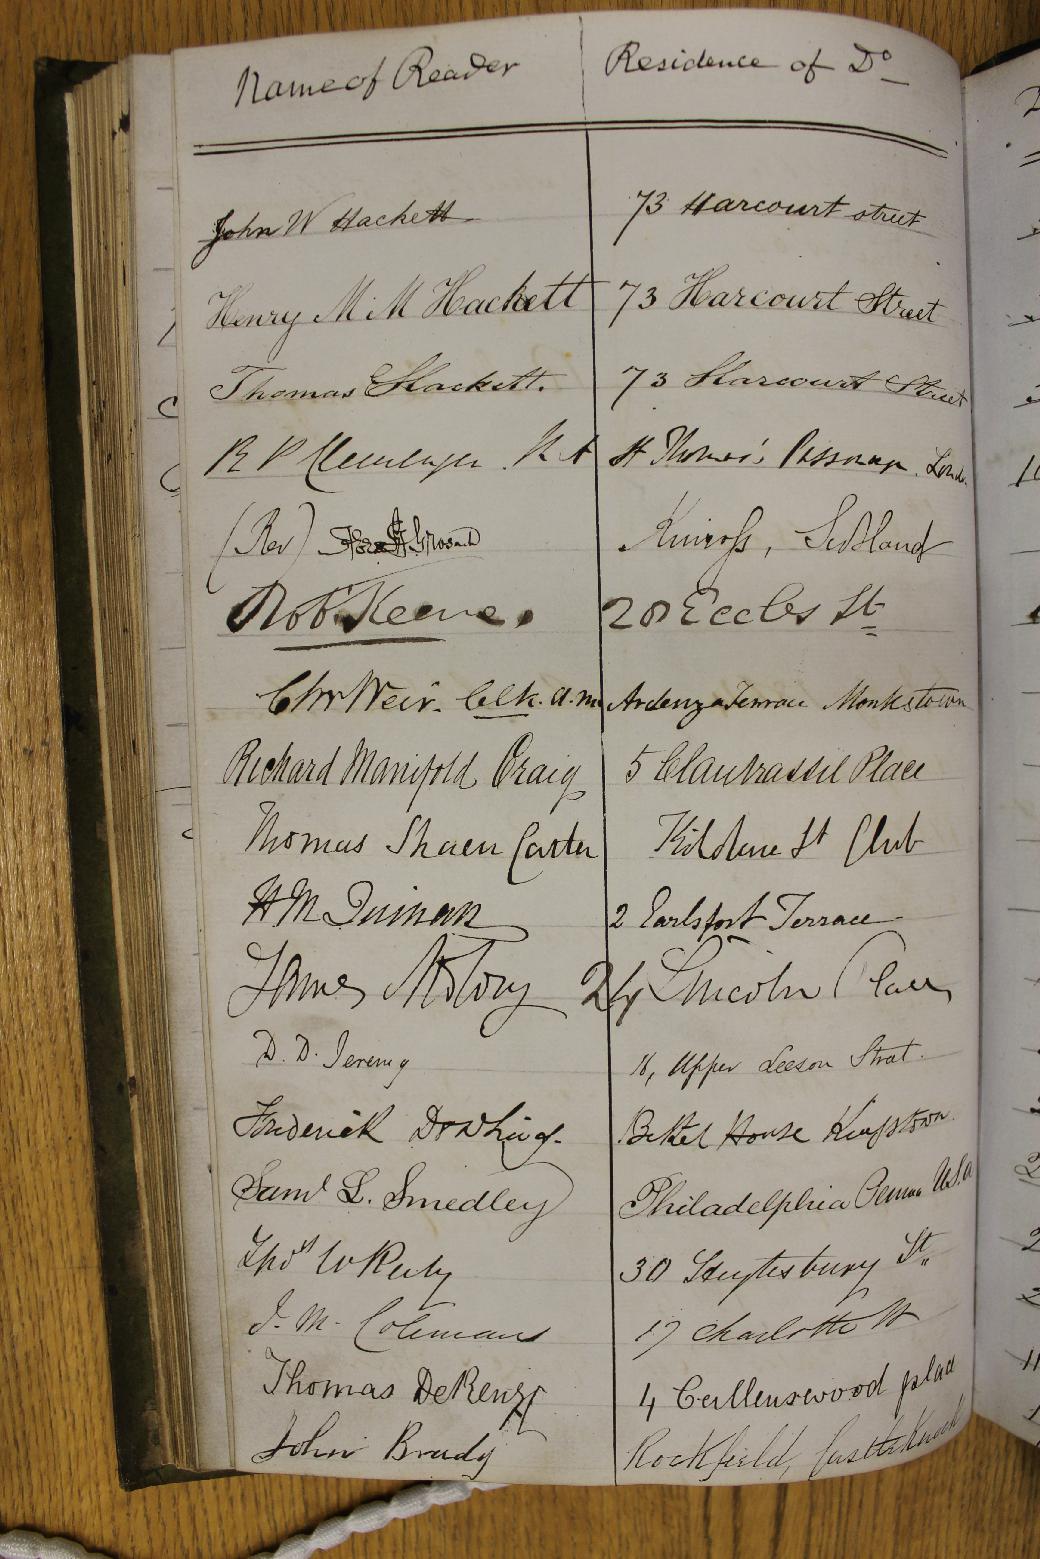 Name of Reader Residence of Do
John W Hackett 73 Harcourt street
Henry M. M Hackett 73 Harcourt Street
Thomas Hackett. 73 Harcourt Street
R P
(Rev) Kinross, Scotland
Robt Keene. 20 Eccles St
Chr Weir. Clk. A.m Ardenza Terrace Monkstown
Richard Manifold Craig 5 Clanbrassil Place
Thomas Shaen Carter Kildare St Club
H M Quinan 2 Earlsfort Terrace
James 24 Lincoln Place
D. D. Jeremy 18, Upper Leeson Street.
Frederick Dowling. Bethel House Kingstown.
Saml L. Smedley Philadelphia Penna U.S.A
Thos W 30 Heytesbury St.
J. M. Colemans 17 Charlotte St
Thomas DeRenzy 4 Cullenswood place
John Brady Rockfield, Castleknock